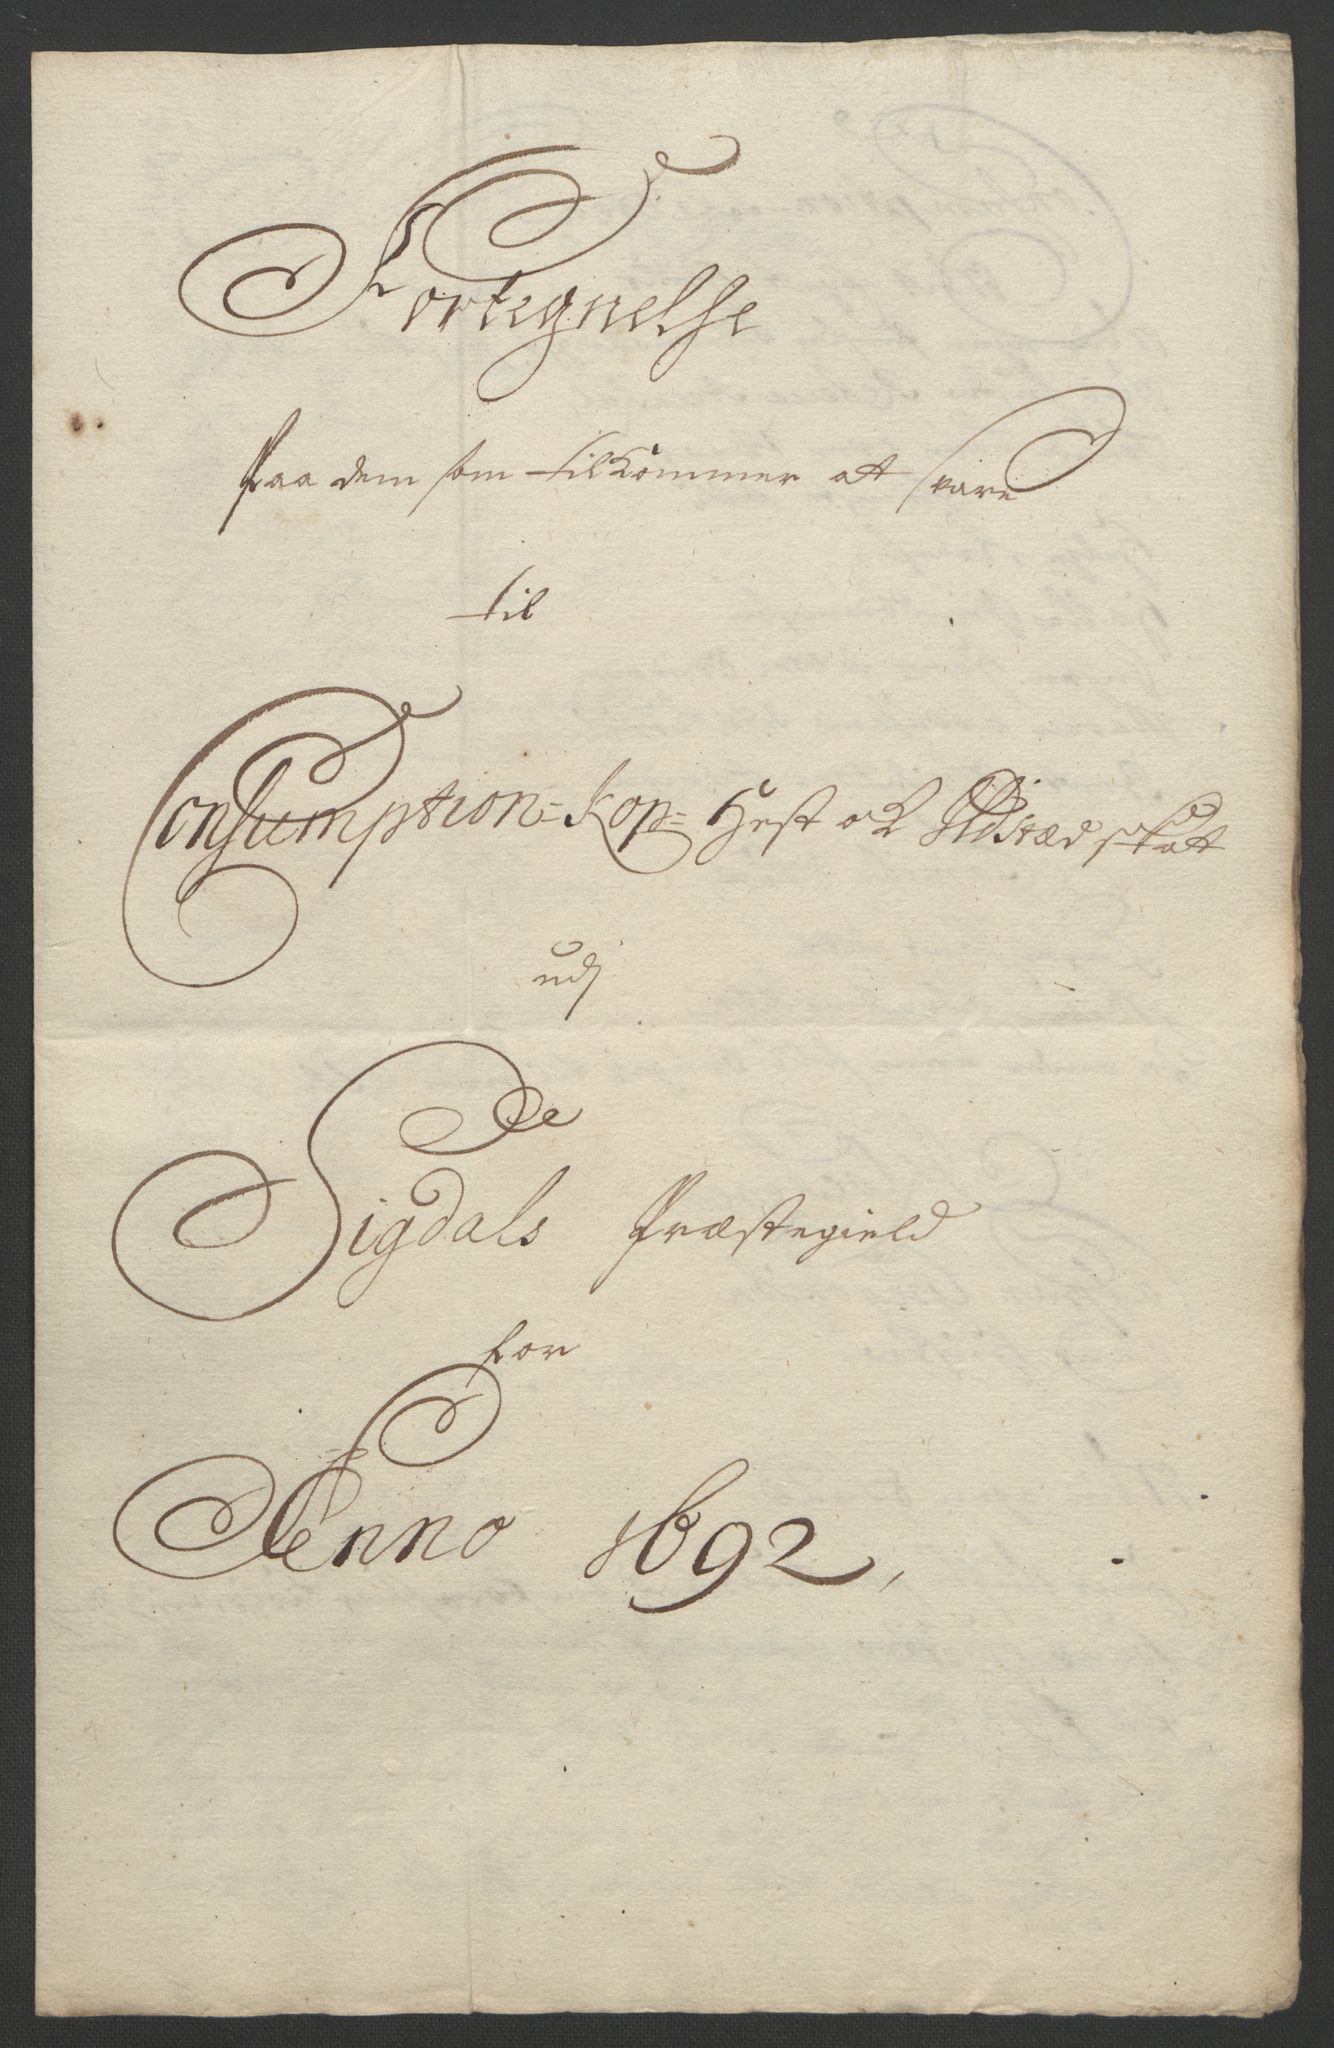 Fortegnelse
Paa dem som tilkommer at svare
til
Consumption= Kop= Hest ok Ildstæd skat
udj
Sigdals Præstegield
for
Anno 1692,